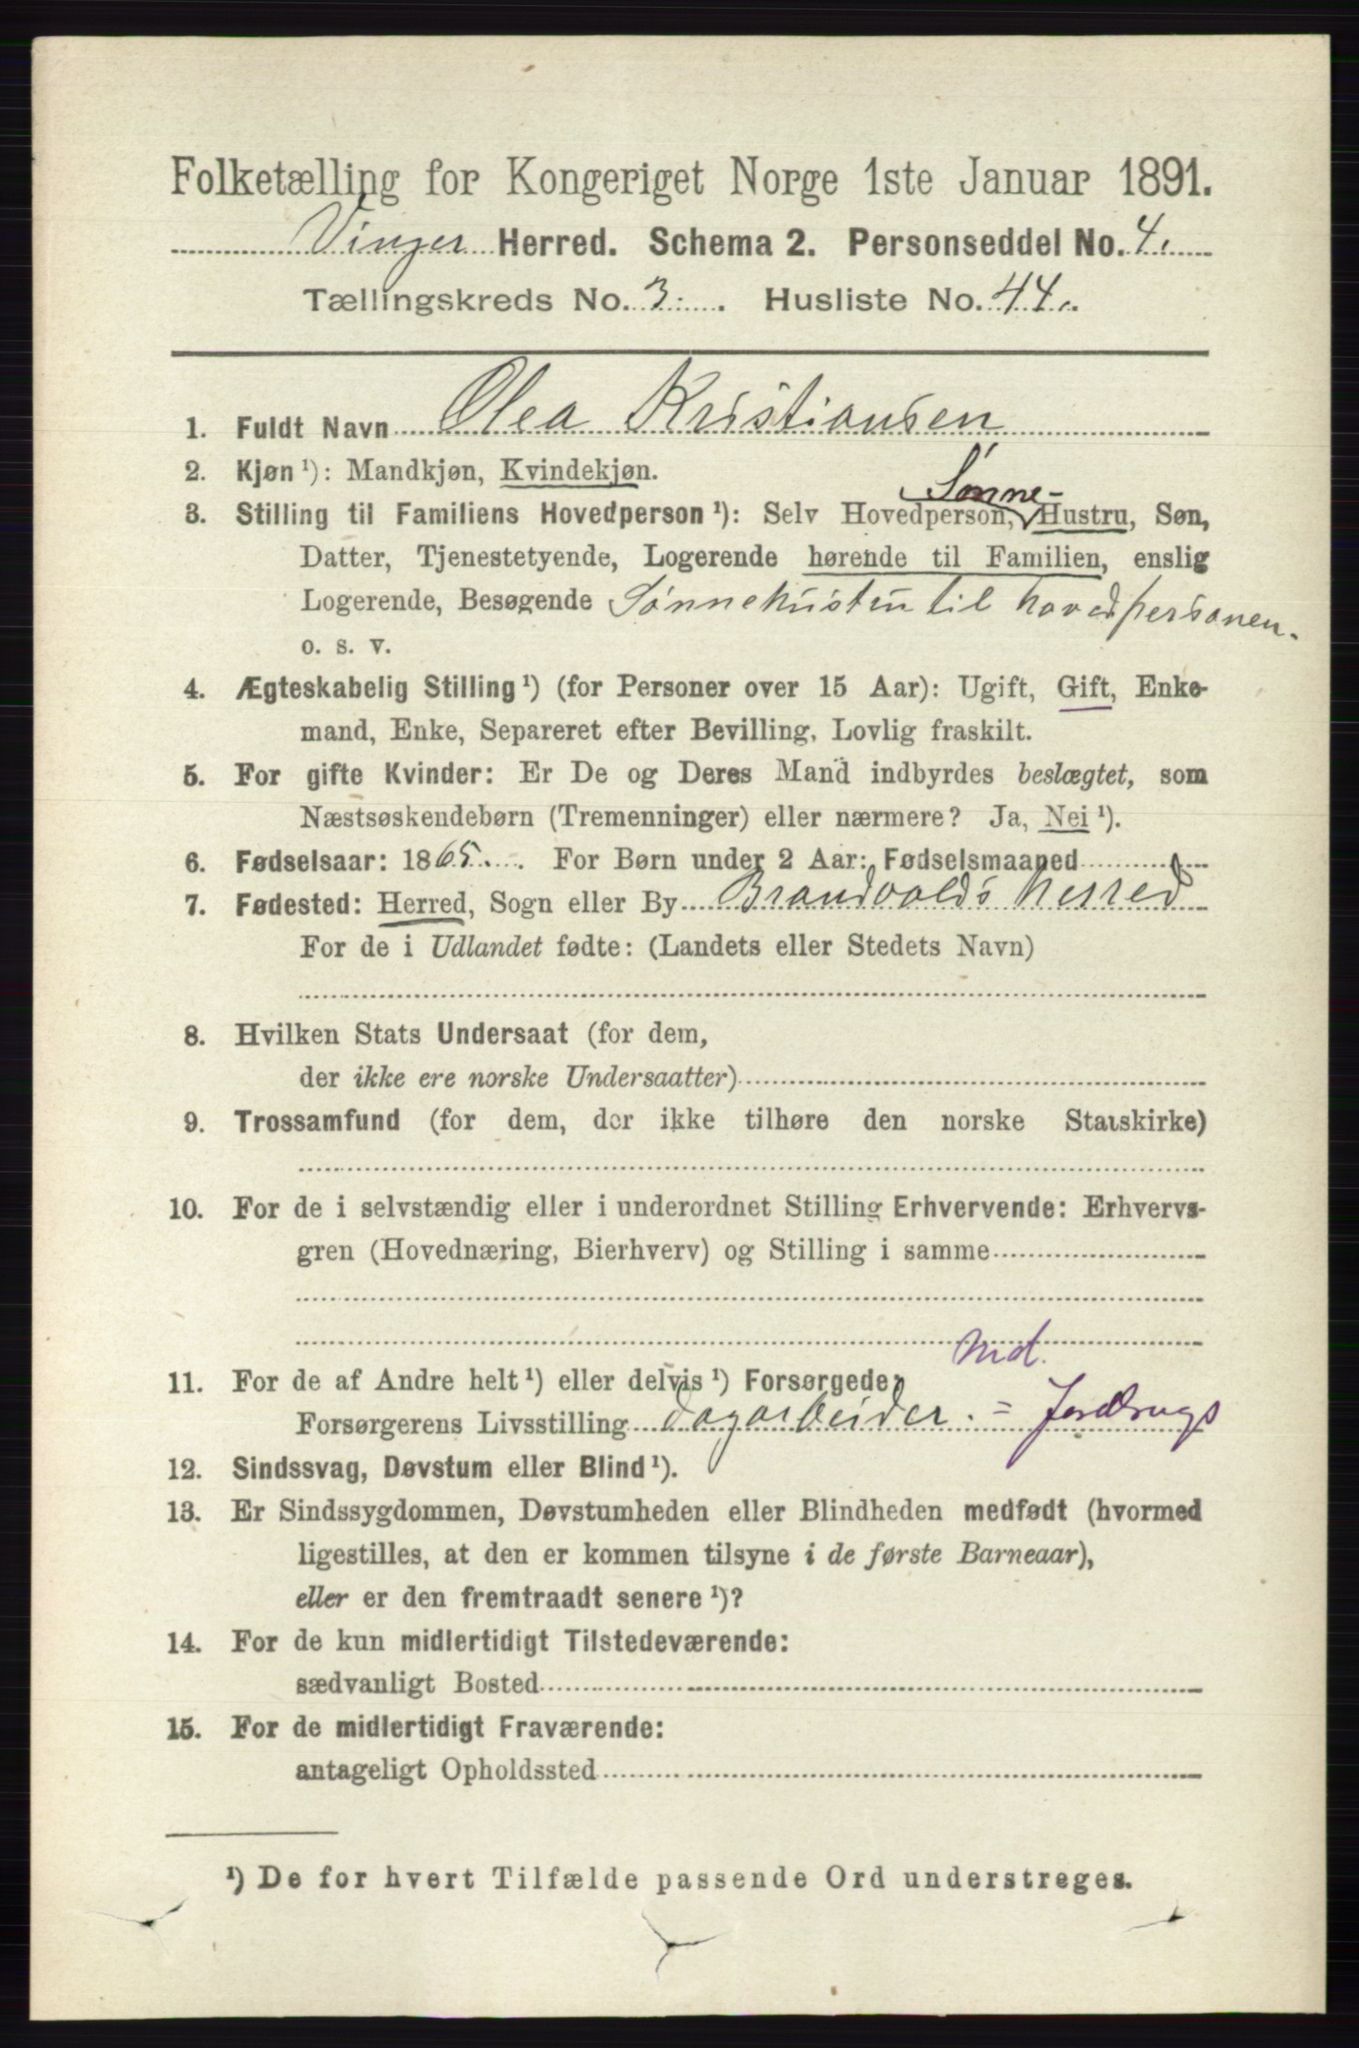 Folketælling for Kongeriget Norge 1ste Januar 1891.
Vinger Herred. Schema 2. Personseddel No. 4.
Tællingskreds No. 3. Husliste No. 44.
1. Fuldt Navn Olea Kristiansen
2. Kjøn ¹): Mandkjøn, Kvindekjøn.
Sønne-
3. Stilling til Familiens Hovedperson ¹): Selv Hovedperson, Hustru, Søn,
Datter, Tjenestetyende, Logerende hørende til Familien, enslig
Logerende, Besøgende Sønnehustru til hovedpersonen.
o. s. v.
4. Ægteskabelig Stilling ¹) (for Personer over 15 Aar): Ugift, Gift, Enke-
mand, Enke, Separeret efter Bevilling, Lovlig fraskilt.
5. For gifte Kvinder: Er De og Deres Mand indbyrdes beslægtet, som
Næstsøskendebørn (Tremenninger) eller nærmere? Ja, Nei ¹).
6. Fødselsaar: 1865. For Børn under 2 Aar: Fødselsmaaned
7. Fødested: Herred, Sogn eller By Brandvolds herred
For de i Udlandet fødte: (Landets eller Stedets Navn)
8. Hvilken Stats Undersaat (for dem,
der ikke ere norske Undersaatter)
9. Trossamfund (for dem, der ikke tilhøre den norske Statskirke)
10. For de i selvstændig eller i underordnet Stilling Erhvervende: Erhvervs-
gren (Hovednæring, Bierhverv) og Stilling i samme
Md.
11. For de af Andre helt ¹) eller delvis ¹) Forsørgede:
Forsørgerens Livsstilling dagarbeider. = Jordbrugs
12. Sindssvag, Døvstum eller Blind ¹).
13. Er Sindssygdommen, Døvstumheden eller Blindheden medfødt (hvormed
ligestilles, at den er kommen tilsyne i de første Barneaar),
eller er den fremtraadt senere ¹)?
14. For de kun midlertidigt Tilstedeværende:
sædvanligt Bosted
15. For de midlertidigt Fraværende:
antageligt Opholdssted
¹) De for hvert Tilfælde passende Ord understreges.